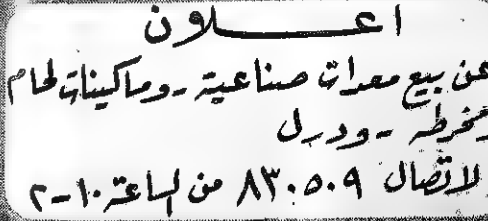 اعــــلان
عن بيع معدات صناعية - وماكينات لحام
ومخرطه - ودرل
لاتصال ٨٣٠٥٠٩ من الساعة ١٠-٢